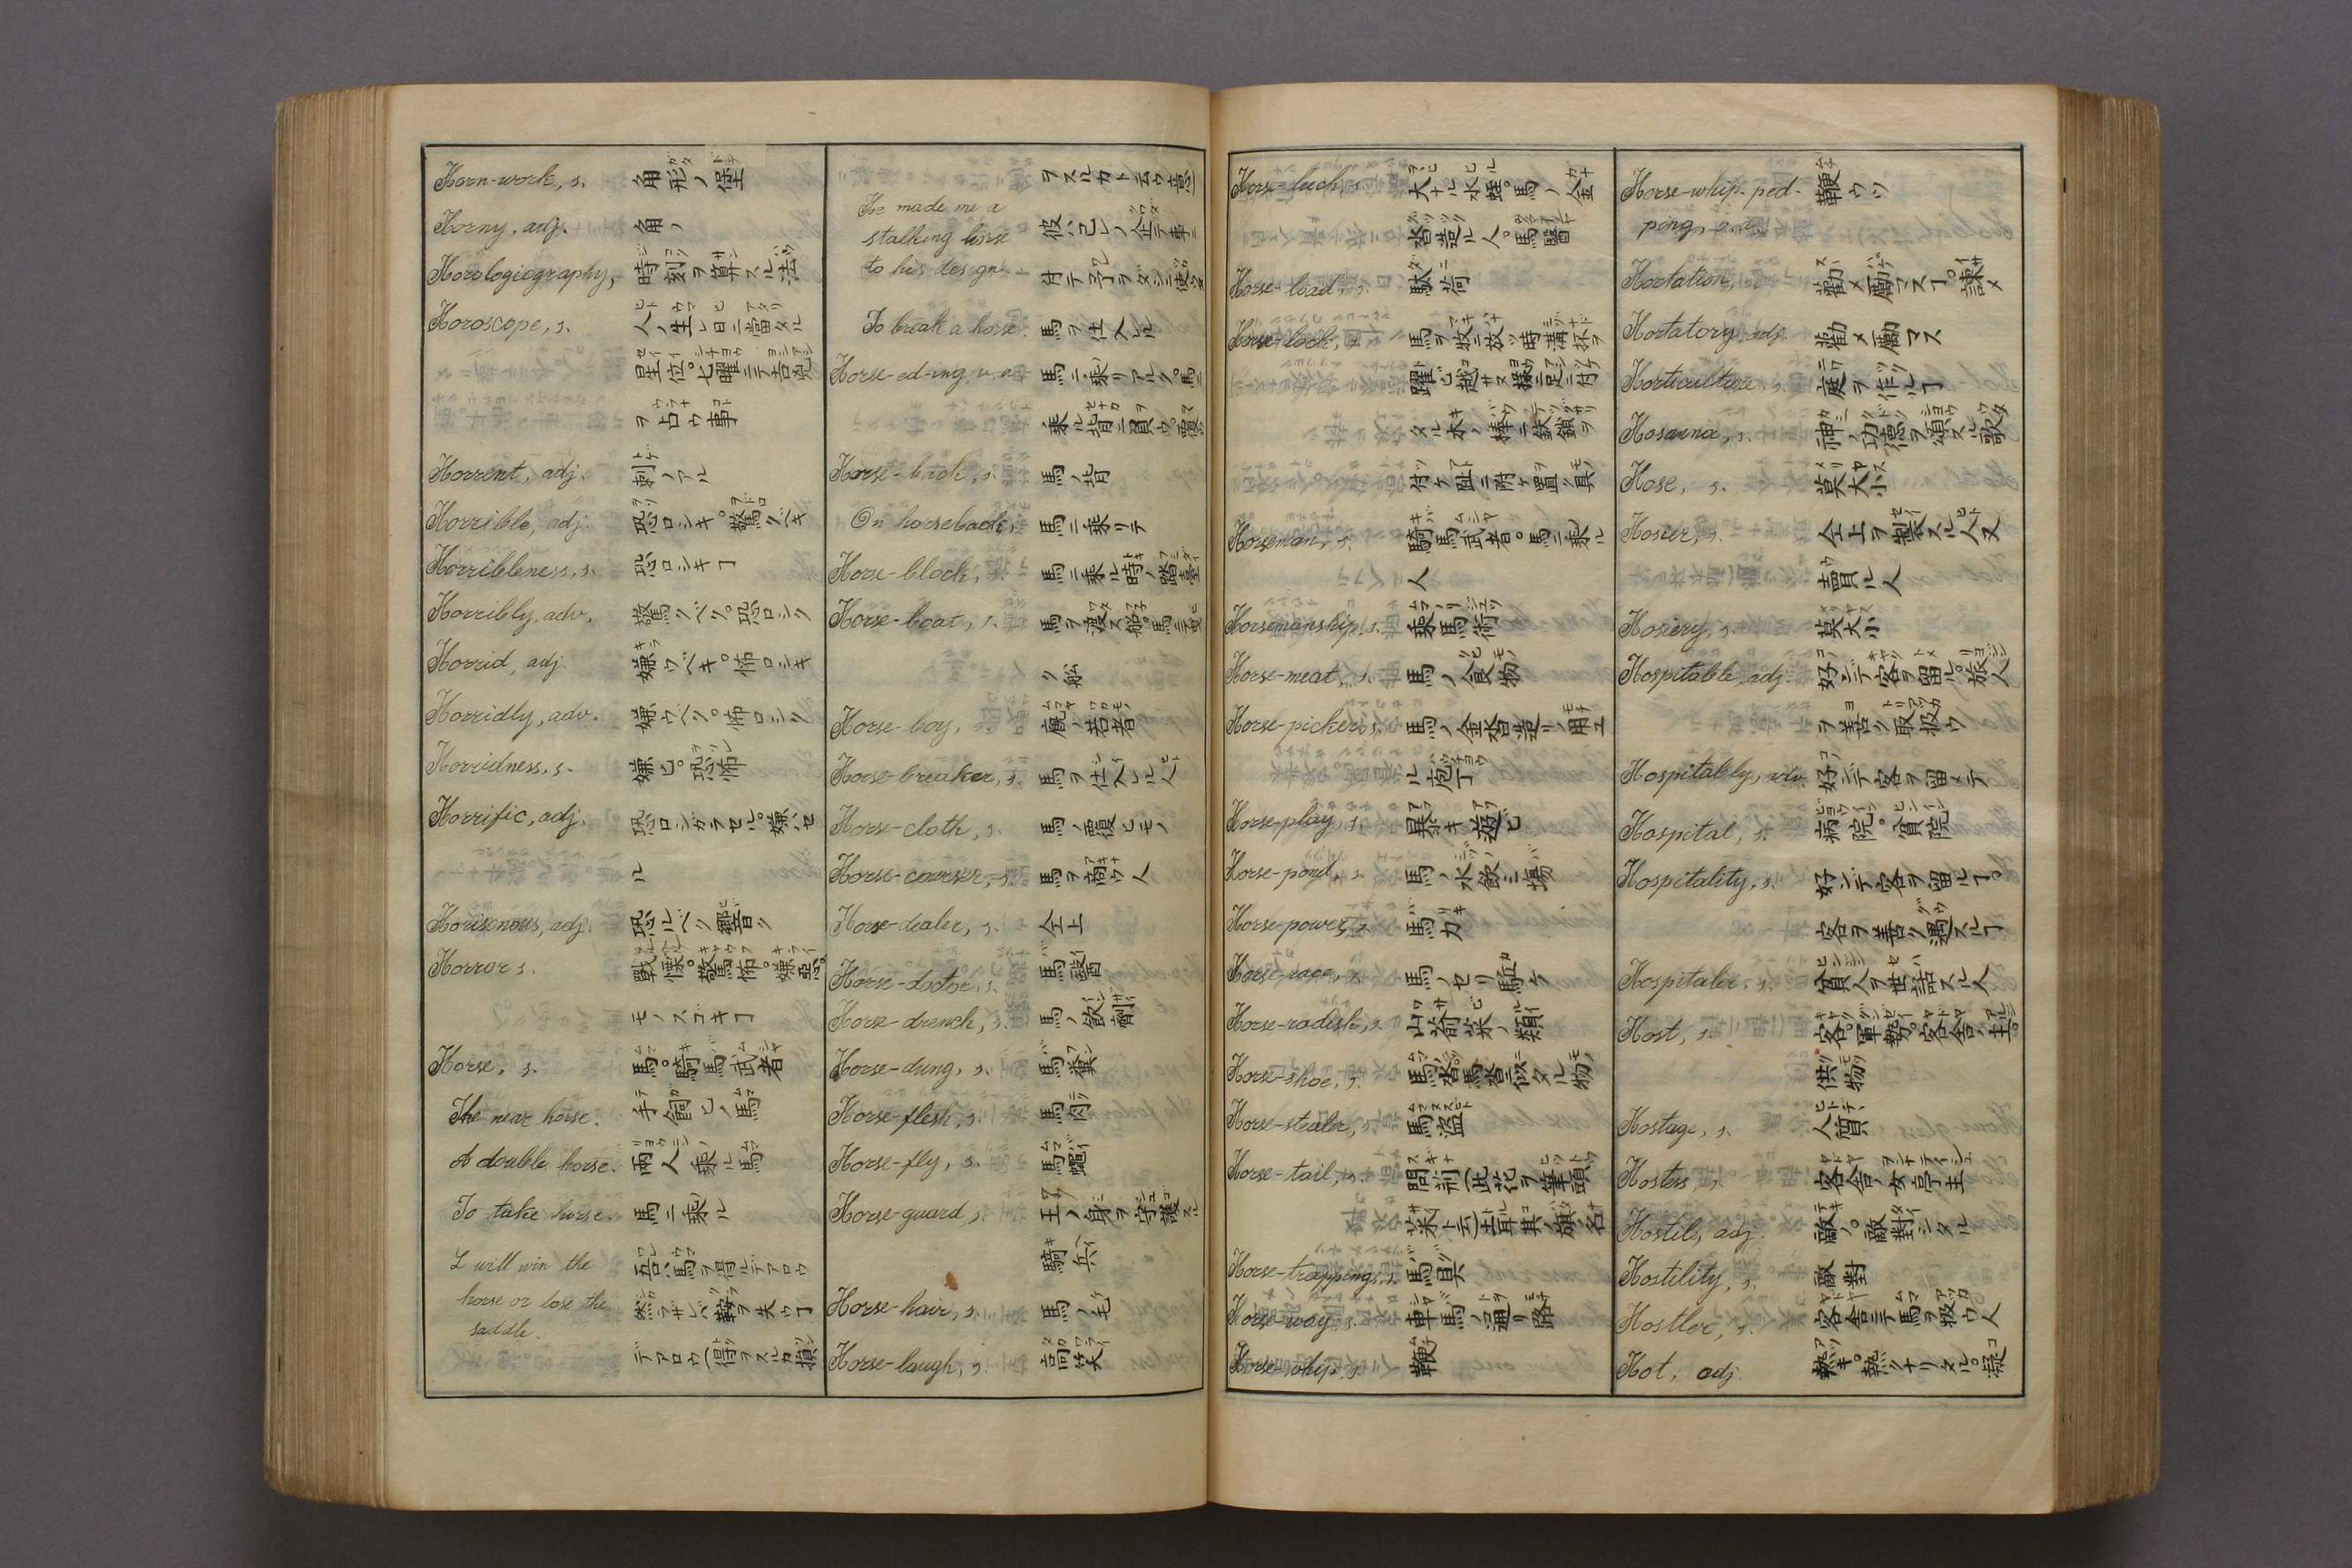 Horn-work, s. 角形ノ堡
Horny, adj. 角ノ
Horologiography, 時刻ヲ算スル法
Horoscope, s. 人ノ生レ日ニ當タル
星位。七曜ニテ吉凶
ヲ占ウ事
Horrent, adj. 刺ノアル
Horrible, adj. 恐ロシキ。驚クベキ
Horribleness, s. 恐ロシキヿ
Horribly, adv. 驚クベク。恐ロシク
Horrid, adj. 嫌ウベキ。怖ロシキ
Horridly, adv. 嫌ウベク。怖ロシク
Horridness, s. 嫌ヒ。恐怖
Horrific, adj. 恐ロシガラセル。嫌ハセ
ル
Horisonous, adj. 恐ルベク響ク
Horror s. 戰慄。驚怖。嫌惡。
モノスゴキヿ
Horse, s. 馬。騎馬武者
The near horse. 手飼ヒノ馬
A double horse. 兩人乘ル馬
To take horse. 馬ニ乘ル
I will win the 吾ハ馬ヲ得ルデアロウ
horse or lose the 然ラザレバ鞍ヲ失ウヿ
saddle. デアロウ(得ヲスルカ損
ヲスルカト云ウ意)
He made me a
stalking horse 彼ハ己レノ企テ事ニ
to his design.
To break a horse. 馬ヲ仕入レル
Horse-ed-ing, v.a. 馬ニ乘リアルク。馬ニ
乘ル。背ニ負ウ。覆
Horse-back, s. 馬ノ背
On horseback, 馬ニ乘リテ
Horse-block, s. 馬ニ乘ル時ノ踏臺
Horse-boat, s. 馬ヲ渡ス船。馬ニテ曳
ク船
Horse-boy, s. 廐ノ若者
Horse-breaker, s. 馬ヲ仕入レル人
Horse-cloth, s. 馬ノ覆ヒモノ
Horse-courser, s. 馬ヲ商ウ人
Horse-dealer, s. 仝上
Horse-doctor, s. 馬醫
Horse-drench, s. 馬ノ飲劑
Horse-dung, s. 馬糞
Horse-flesh, s. 馬肉
Horse-fly, s. 馬蠅
Horse-guard, s. 王ノ身ヲ守護スル
騎兵
Horse-hair, s. 馬ノ毛
Horse-laugh, s. 高笑
Horse-leech, s. 大ナル水蛭。馬ノ金
沓造ル人。馬醫
Horse-load, s. 駄荷
Horse-lock, s. 馬ヲ牧ニ放ツ時溝杯ヲ
躍ビ越サヌ樣ニ足ニ付
タル木ノ棒ニ鉄鎖ヲ
付ケ趾ニ附ケ置ク具
Horseman, s. 騎馬武者。馬ニ乘ル
人
Horsemanship, s. 乘馬術
Horse-meat, s. 馬ノ食物
Horse-picker, s. 馬ノ金沓造リノ用ユ
ル庖丁
Horse-play, s. 暴キ遊ビ
Horse-pond, s. 馬ノ水飲ミ場
Horse-power, s. 馬力
Horse-race, s. 馬ノセリ駈ケ
Horse-radish, s. 山葵菜ノ類
Horse-shoe, s. 馬沓。馬沓ニ似タル物
Horse-stealer, s. 馬盗
Horse-tail, s. 問荊(此花ヲ筆頭
菜ト云)土耳其ノ旗ノ名
Horse-trapping, s. 馬具
Horse-way, s. 車馬ノ通リ路
Horse-whip, s. 鞭
Horse-whip-ped- 鞭ウツ
ping, v.a.
Hortation, s. 勸メ勵マスヿ。諫メ
Hortatory, adj. 勸メ勵マス
Horticulture, s. 庭ヲ作ルヿ
Hosanna, s. 神ノ功德ヲ頌スル歌
Hose, s. 莫大小
Hosier, s. 仝上ヲ製スル人又
賣ル人
Hosiery, s. 莫大小
Hospitable, adj. 好ンデ客ヲ留ル。旅人
ヲ善ク取扱ウ
Hospitably, adv. 好ンデ客ヲ留メテ
Hospital, s. 病院。貧院
Hospitality, s. 好ンデ客ヲ留ルヿ。
客ヲ善ク遇スルヿ
Hospitaler, s. 貧人ヲ世話スル人
Host, s. 客。軍勢。客舎ノ主。
供物
Hostage, s. 人質
Hostess, s. 客舎ノ女亭主
Hostile, adj. 敵ノ。敵對シタル
Hostility, s. 敵對
Hostler, s. 客舎ニテ馬ヲ扱ウ人
Hot, adj. 熱キ。熱クナリタル。凝